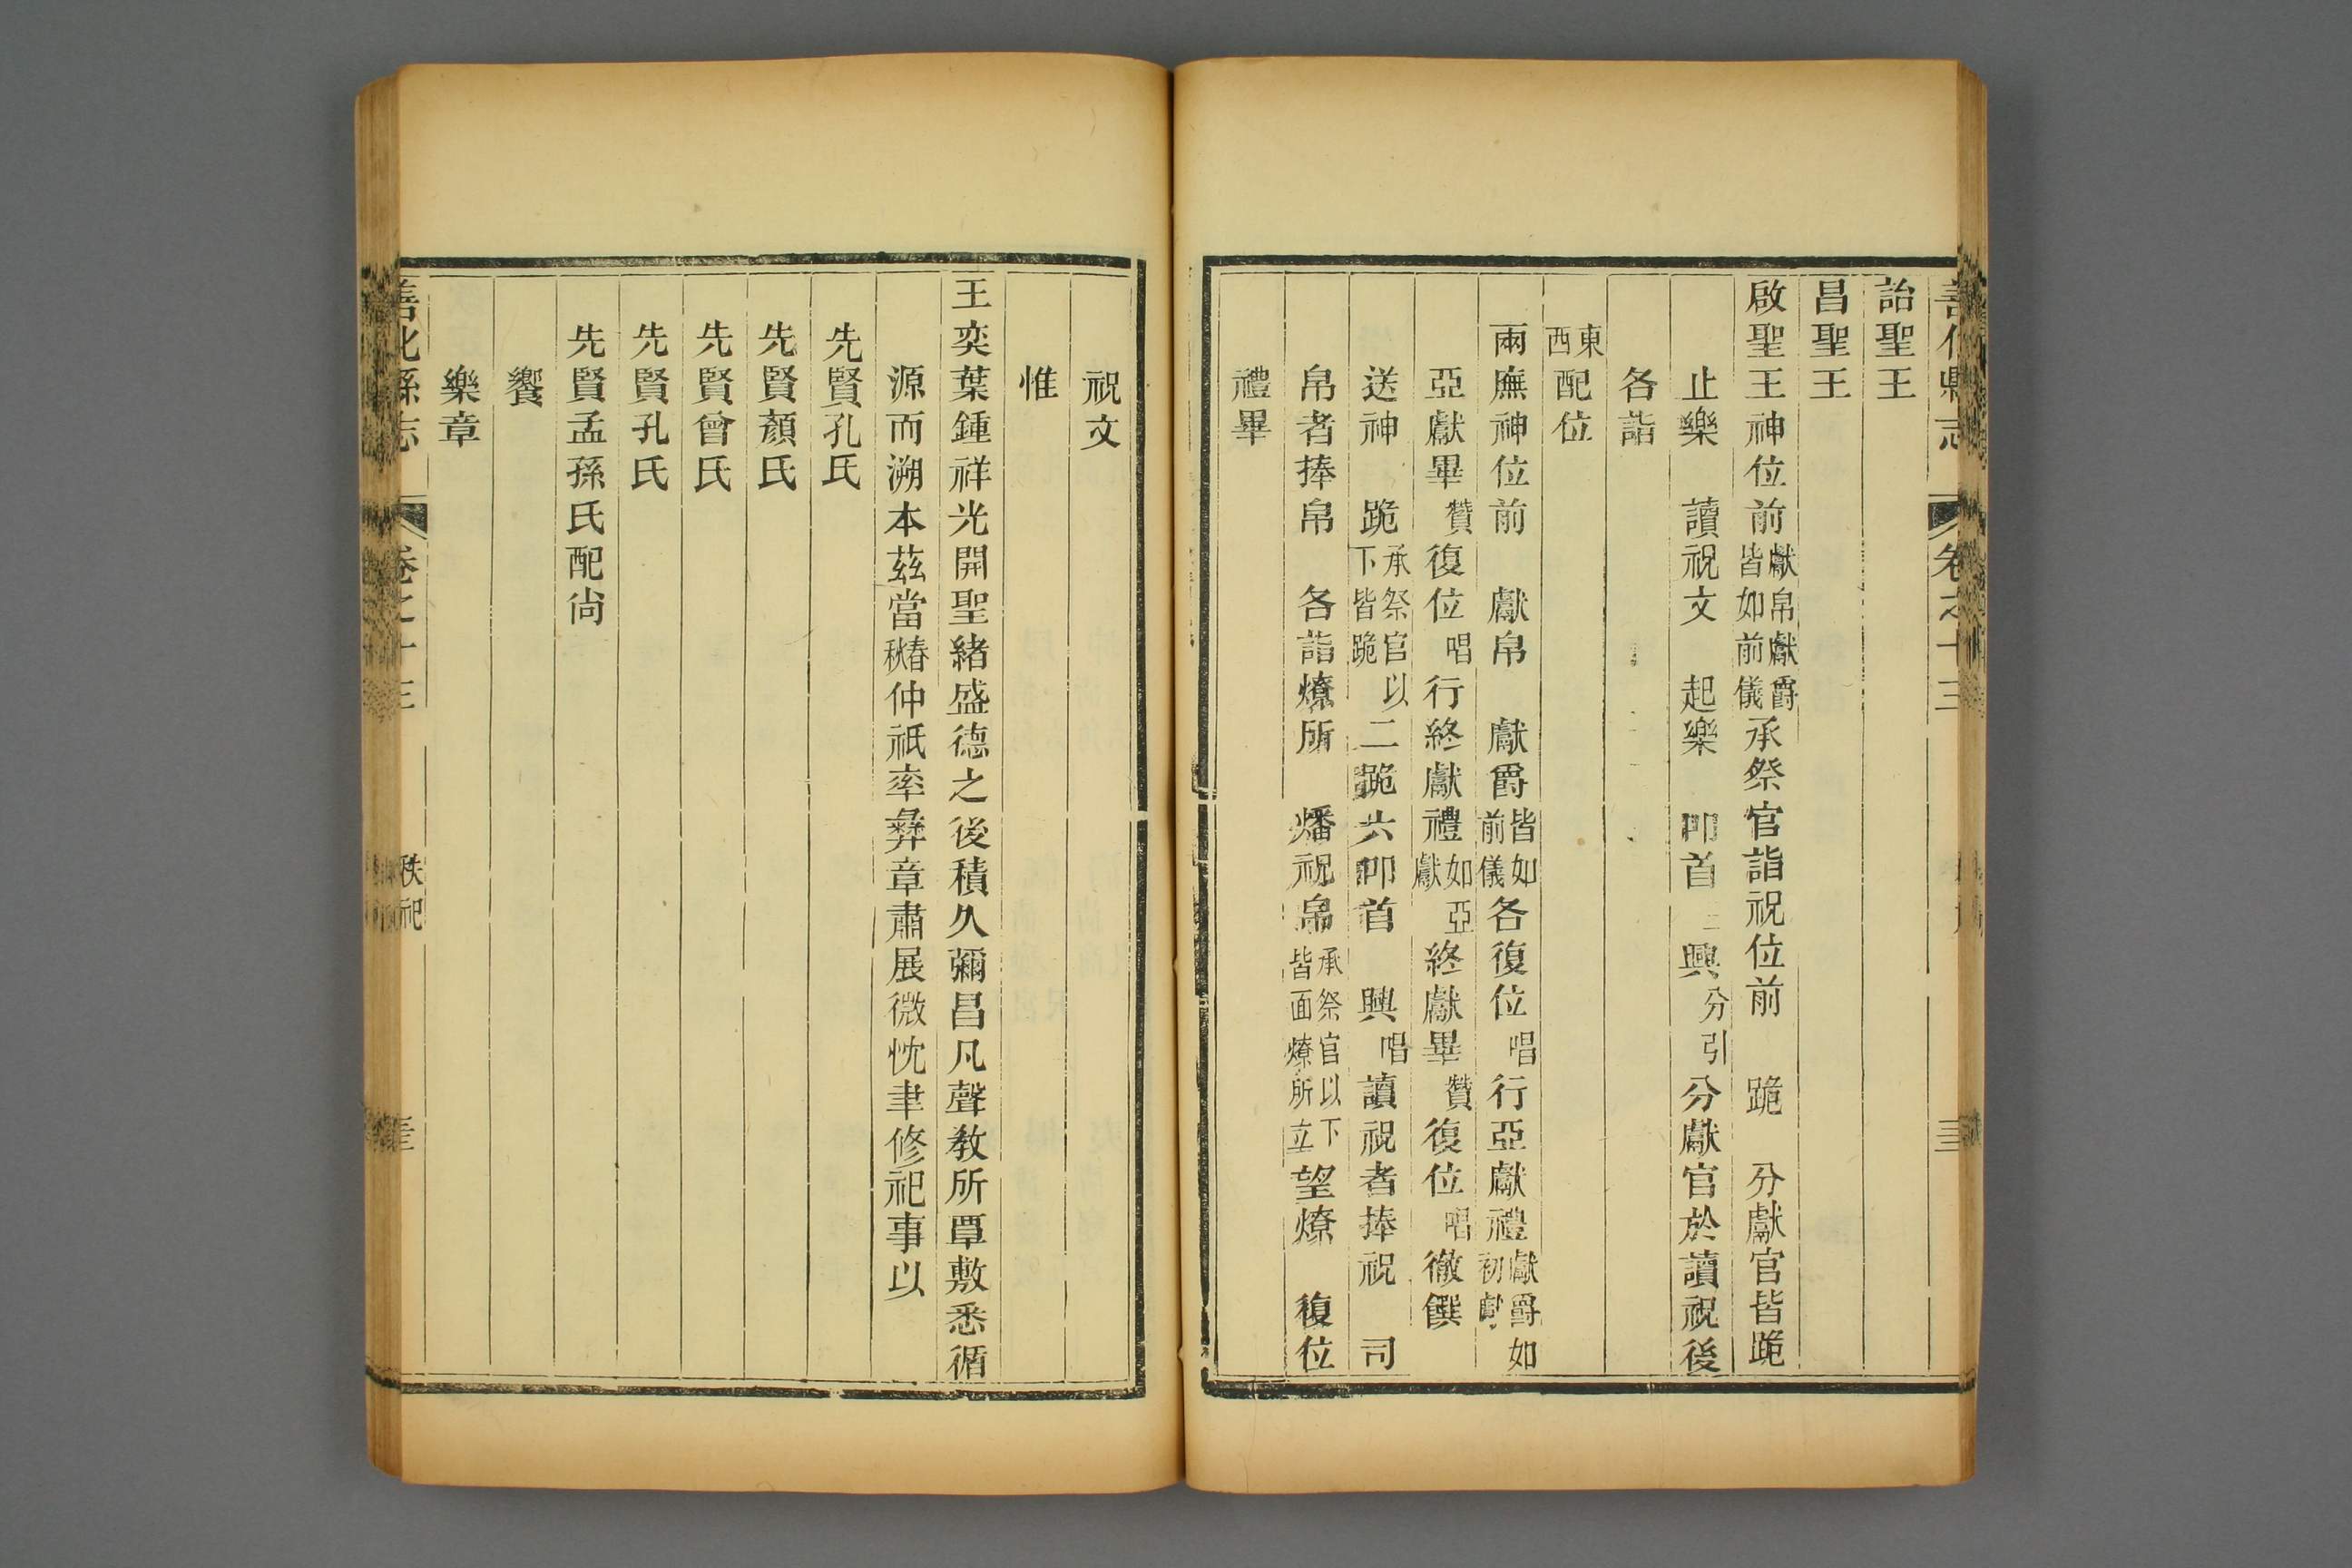 善化縣志 卷之十三
詒聖王
昌聖王
啟聖王神位前獻帛獻爵皆如前儀承祭官詣祝位前 跪 分獻官皆跪
止樂 讀祝文 起樂 叩首三興分引分獻官於讀祝後
各詣
東西配位
兩廡神位前 獻帛 獻爵皆如前儀各復位唱行亞獻禮獻爵如初獻
亞獻畢贊復位唱行終獻禮如亞獻終獻畢贊復位唱徹饌
送神 跪承祭官以下皆跪二跪六叩首 興唱讀祝者捧祝 司
帛者捧帛 各詣燎所 燔祝帛承祭官以下皆面燎所立望燎 復位
禮畢
祝文
惟
王奕葉鍾祥光開聖緒盛德之後積久彌昌凡聲教所覃敷悉循
源而溯本茲當春秋仲祇率彝章肅展微忱聿修祀事以
先賢孔氏
先賢顏氏
先賢曾氏
先賢孔氏
先賢孟孫氏配尙
饗
樂章
善化縣志 卷之十三 秩祀